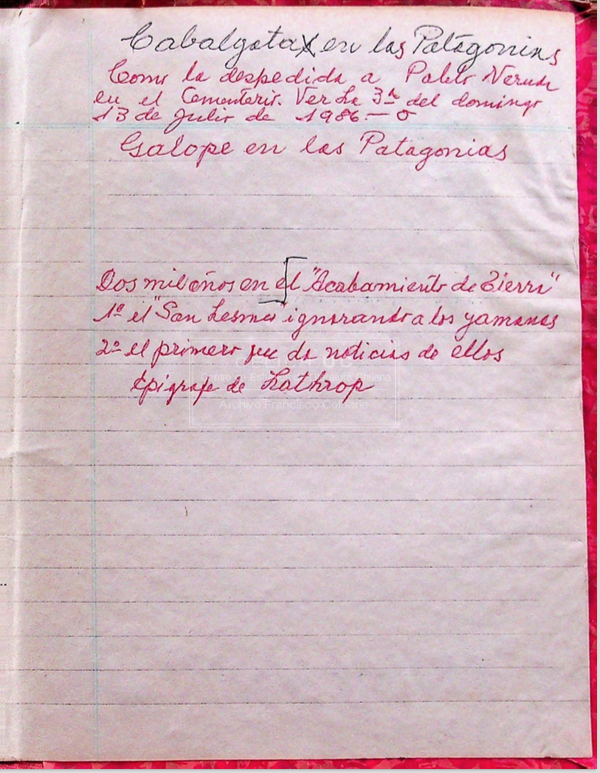 Cabalgata en las Patagonias
Como la despedida a Pablo Neruda
en el Cementerio. Ver La 3ª del domingo
13 de Julio de 1986 — o
Galope en las Patagonias
Dos mil años en el "Acabamiento de Tierra"
1º el "San Lesmes" ignorando a los yamanas
2º el primero que da noticias de ellos
Epígrafe de Lathrop
Archivo Francisco Coloane